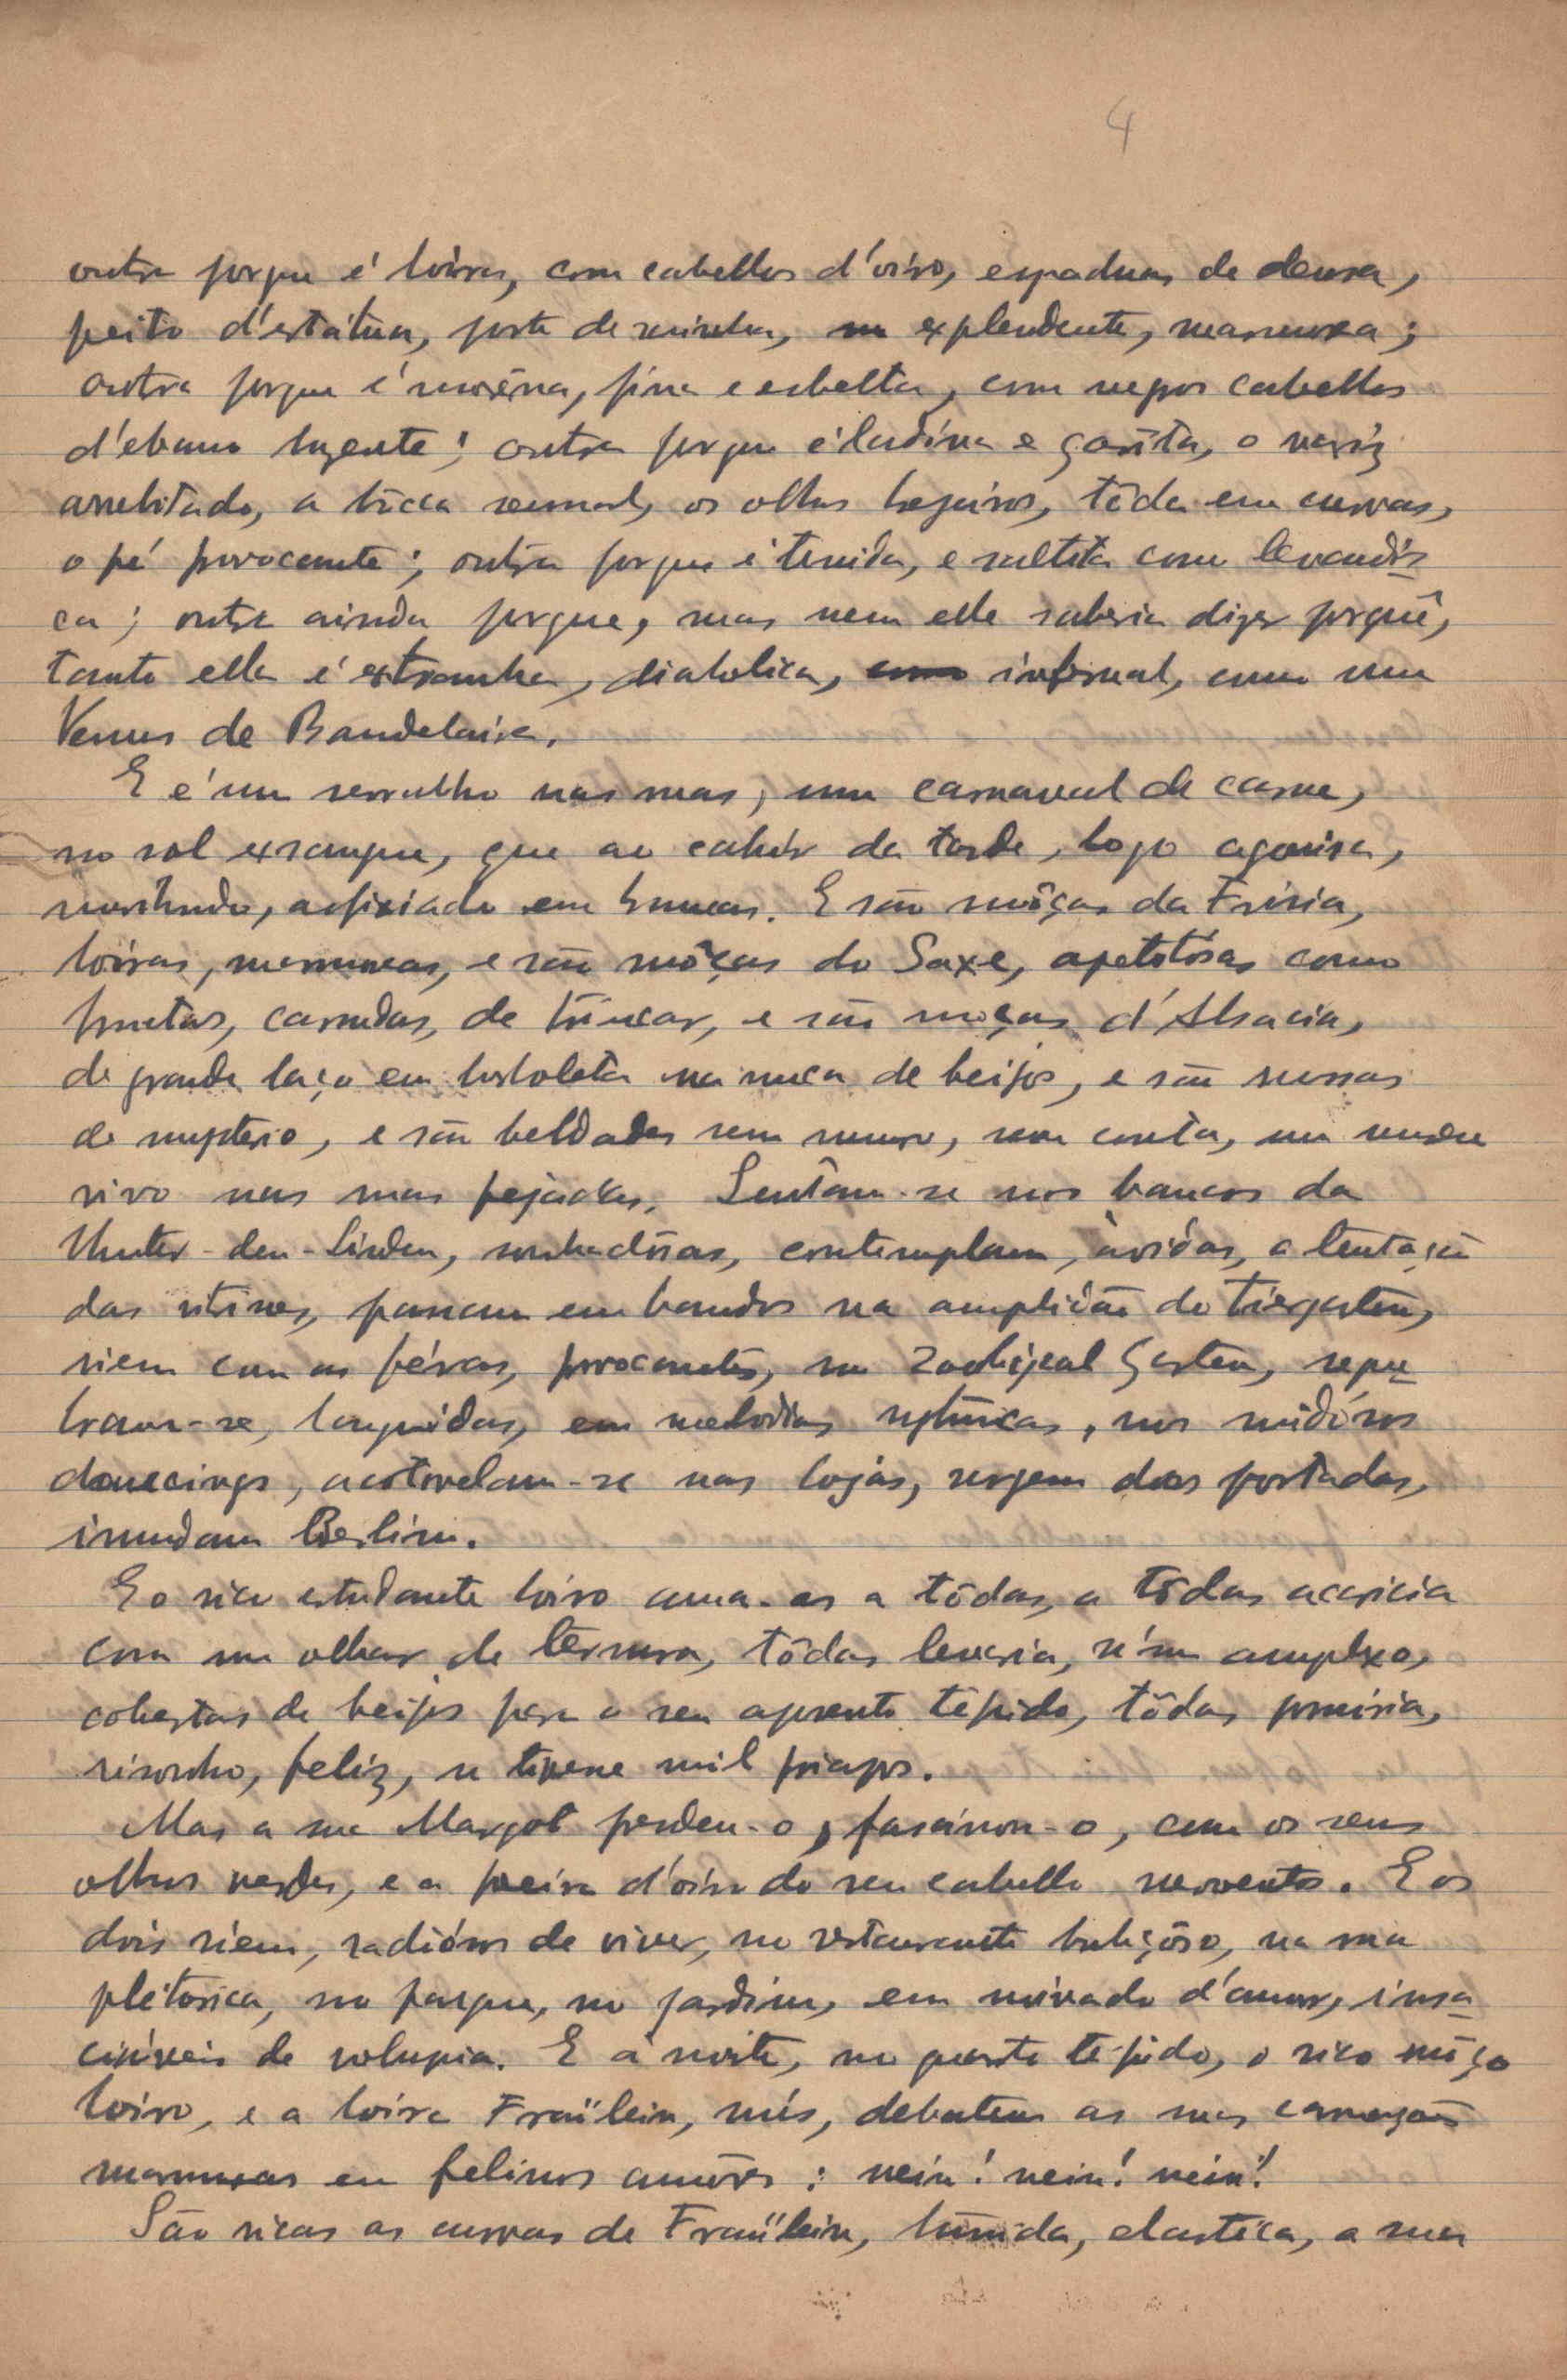 4
outra porque é loira, com cabellos d'oiro, espaduas de deusa,
peito d'estátua, porte de rainha, explendente, marmorea;
outra porque é morêna, fina e esbelta, com negros cabellos
d'ebano lugente; outra porque é ladina e garôta, o nariz
arrebitado, a bôcca sensual, os olhos brejeiros, tôda em curvas,
o pé provocante; outra porque é timida, e saltita como levandis-
ca; outra ainda porque, mas nem elle saberia dizer porquê,
tanto ella é extranha, diabolica, infernal, como uma
Venus de Baudelaire.
E é um serralho nas ruas, um carnaval de carne,
no sol exsangue, que ao cahir da tarde, logo agonisa,
moribundo, asfixiado em brumas. E são môças da Frisia,
loiras, marmoreas, e são môças do Saxe, apetitósas como
frutas, carnudas, de trincar, e são moças d'Alsacia,
de grande laço em borboleta na nuca de beijos, e são russas
de mysterio, e são beldades sem numero, sem conta, um museu
vivo nas ruas pejadas. Sentam-se nos bancos da
Unter-den-Linden, sonhadôras, contemplam, ávidas, a tentação
das vitines, passam em bandos na amplidão do Tiergarten,
riem com as féras, provocantes, no Zoological Garten, reque-
bram-se, languidas, em melodias rytmicas, nos ruidósos
danecings, acotovelam-se nas lojas, surgem das portadas,
inundam Berlim.
E o rico estudante loiro ama-as a tôdas, a tôdas acaricia
com um olhar de ternura, tôdas levaria, n'um amplexo,
cobertas de beijos para o seu aposento tépido, tôdas possuiria,
risonho, feliz, se tivesse mil priapos.
Mas a sua Margot perdeu-o, fascinou-o, com os seus
olhos verdes, e a poeira d'oiro do seu cabello revoento. E os
dois riem, radiósos de viver, no restaurante buliçôso, na rua
pletorica, no parque, no jardim, em noivado d'amor, insa-
ciáveis de volupia. E á noite, no quarto té-pido, o rico môço
loiro, e a loira Fraülein, nús, debatem as suas carnações
marmoreas em felinos amôres: nein! nein! nein!
São ricas as curvas de Fraülein, húmida, elastica, a sua